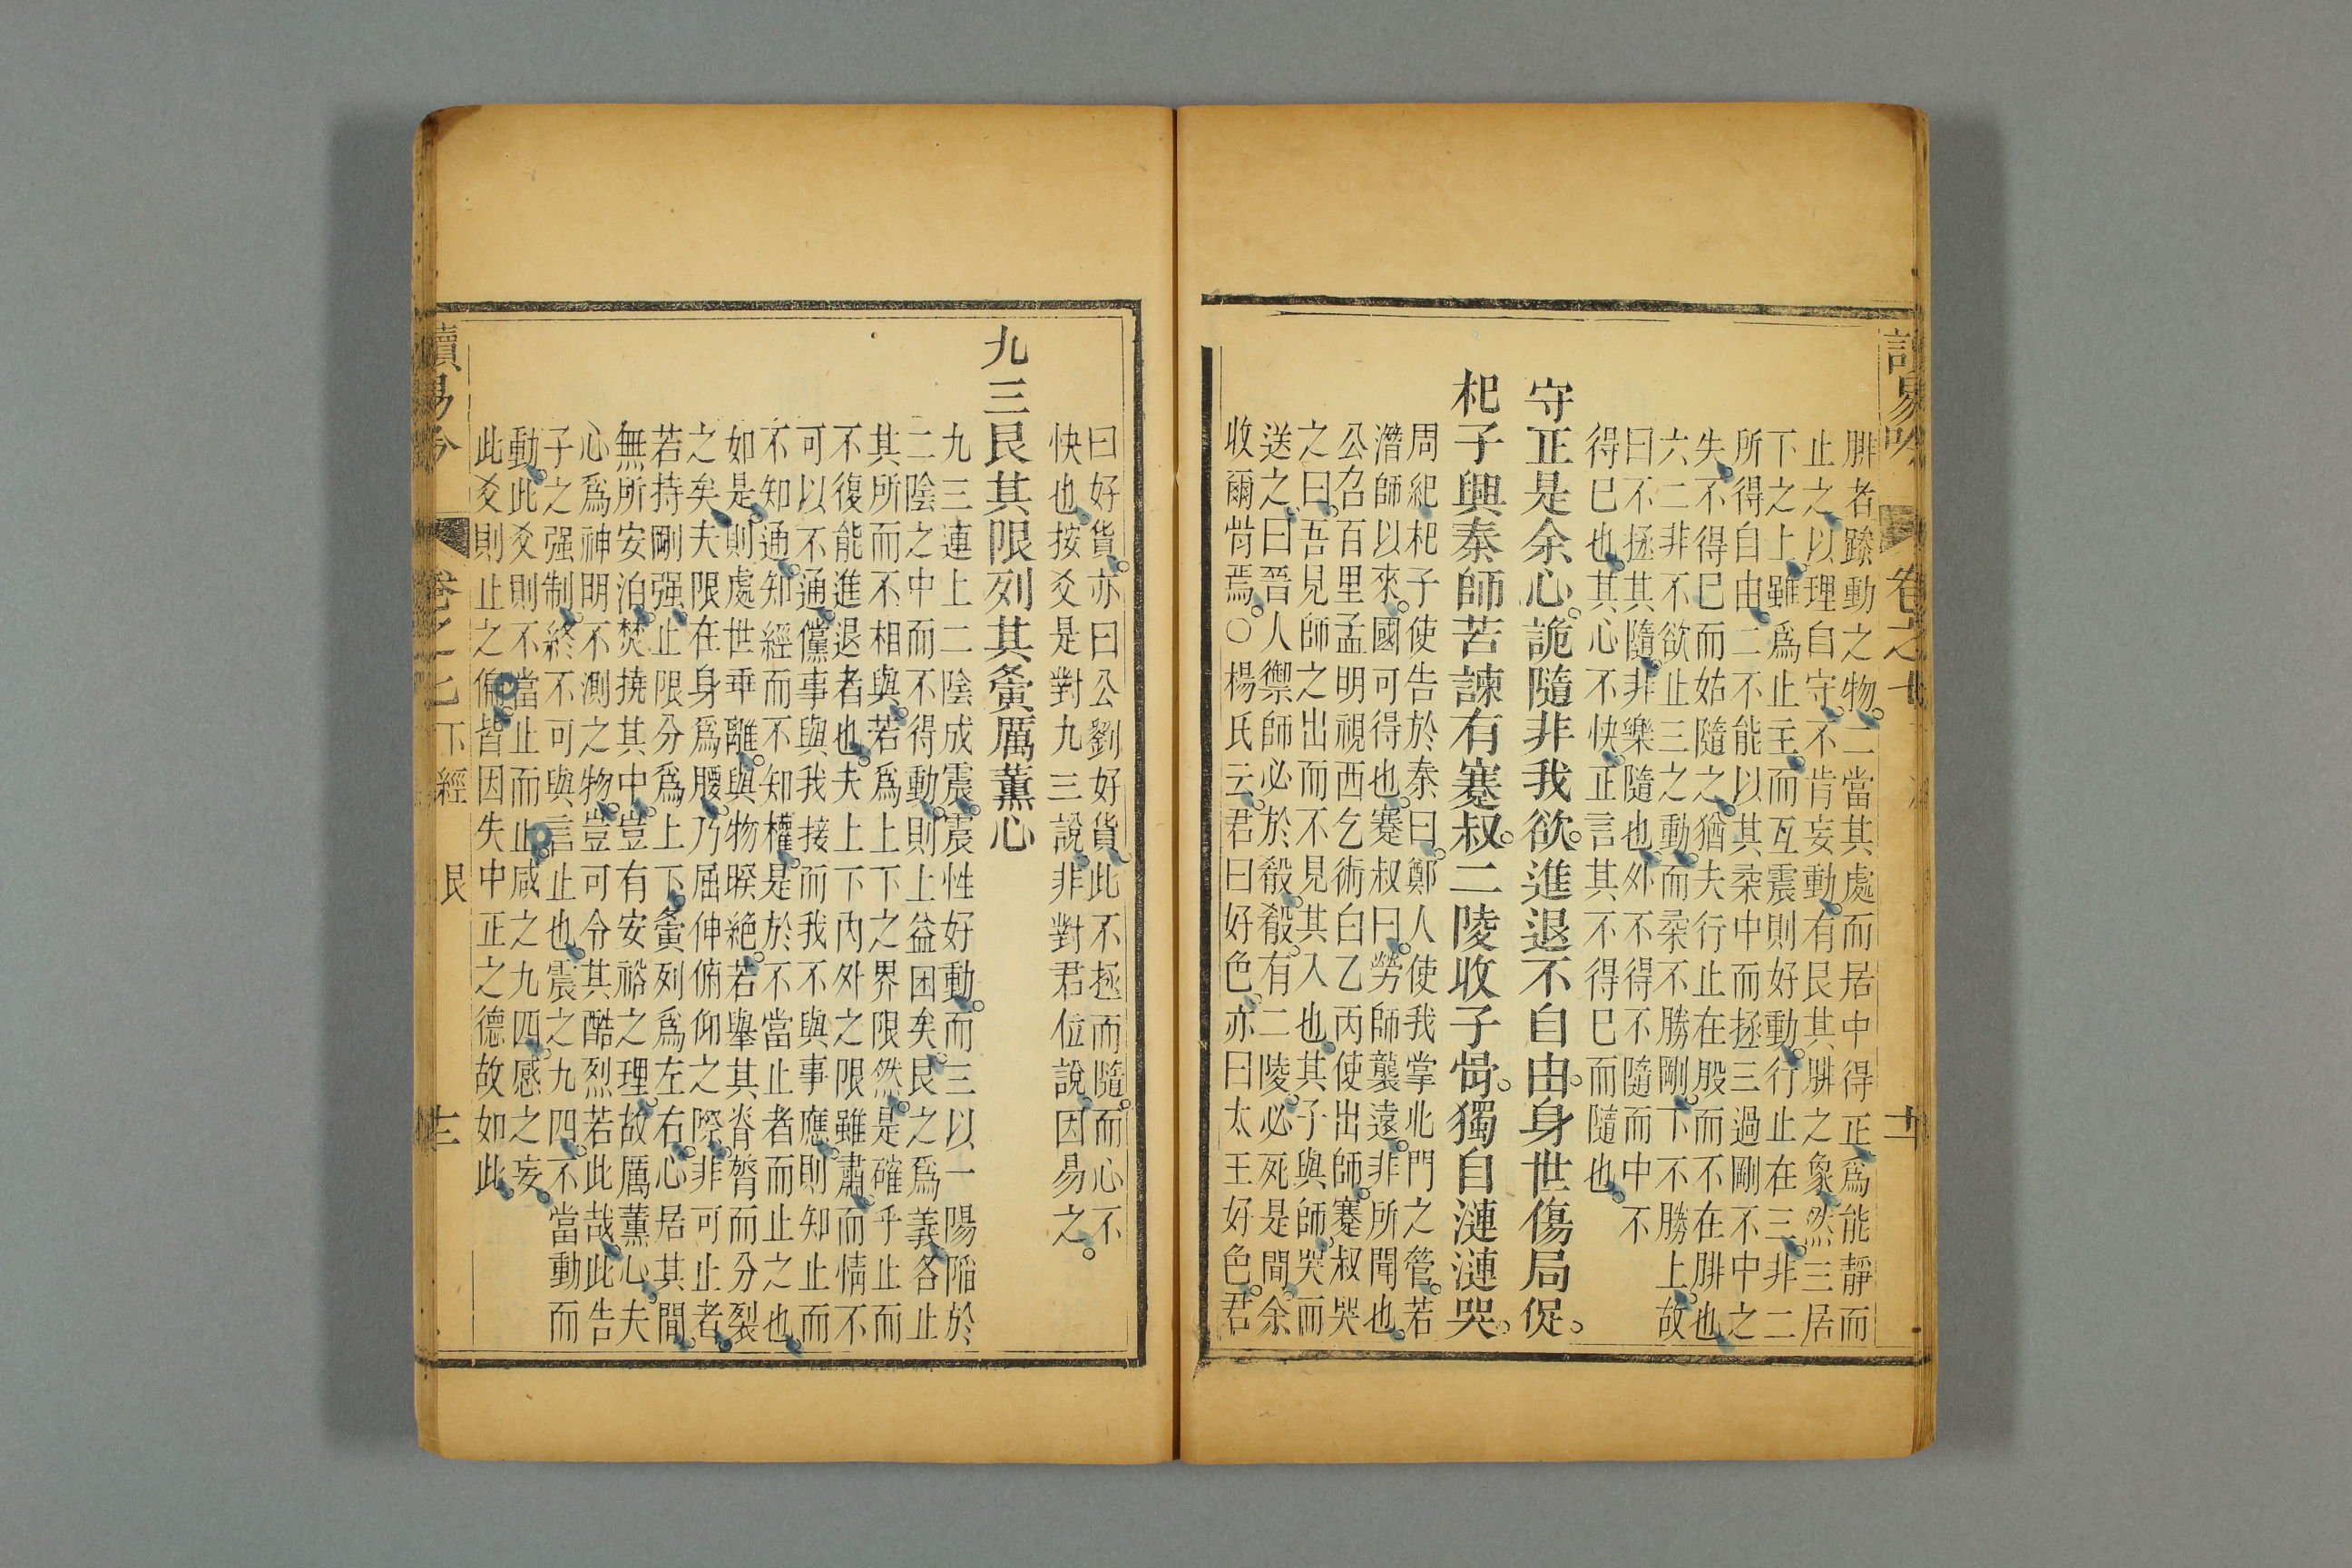 讀易吟 卷之七 十二
腓者躁動之物二當其處而居中得正爲能靜而
止之以理自守不肯妄動有艮其腓之象然三居
下之上雖爲止主而互震則好動行止在三非二
所得自由二不能以其柔中而拯三過剛不中之
失不得已而姑隨之猶夫行止在股而不在腓也
六二非不欲止三之動而柔不勝剛下不勝上故
曰不拯其隨非樂隨也外不得不隨而中不
得已也其心不快正言其不得已而隨也
守正是余心詭隨非我欲進退不自由身世傷局促
杞子興秦師苦諫有蹇叔二陵收子骨獨自漣漣哭
周紀杞子使告於秦曰鄭人使我掌北門之管若
潛師以來國可得也蹇叔曰勞師襲遠非所聞也
公召百里孟明視西乞術白乙丙使出師蹇叔哭
之曰吾見師之出而不見其入也其子與師哭而
送之曰晉人禦師必於殽殽有二陵必死是間余
收爾骨焉○楊氏云君曰好色亦曰太王好色君
曰好貨亦曰公劉好貨此不拯而隨而心不
快也按爻是對九三說非對君位說因易之
九三艮其限列其夤厲薰心
九三連上二陰成震震性好動而三以一陽陷於
二陰之中而不得動則上益困矣艮之爲義各止
其所而不相與若爲上下之界限然是確乎止而
不復能進退者也夫上下內外之限雖肅而情不
可以不通儻事與我接而我不與事應則知止而
不知通知經而不知權是於不當止者而止之也
如是則處世乖離與物暌絕若舉其脊膂而分裂
之矣夫限在身爲腰乃屈伸俯仰之際非可止者
若持剛强止限分爲上下夤列爲左右心居其間
無所安泊焚撓其中豈有安裕之理故厲薰心夫
心爲神明不測之物豈可令其酷烈若此哉此告
子之强制終不可與言止也震之九四不當動而
動此爻則不當止而止咸之九四感之妄
此爻則止之偏皆因失中正之德故如此
讀易吟 卷之七 下經 艮 十三